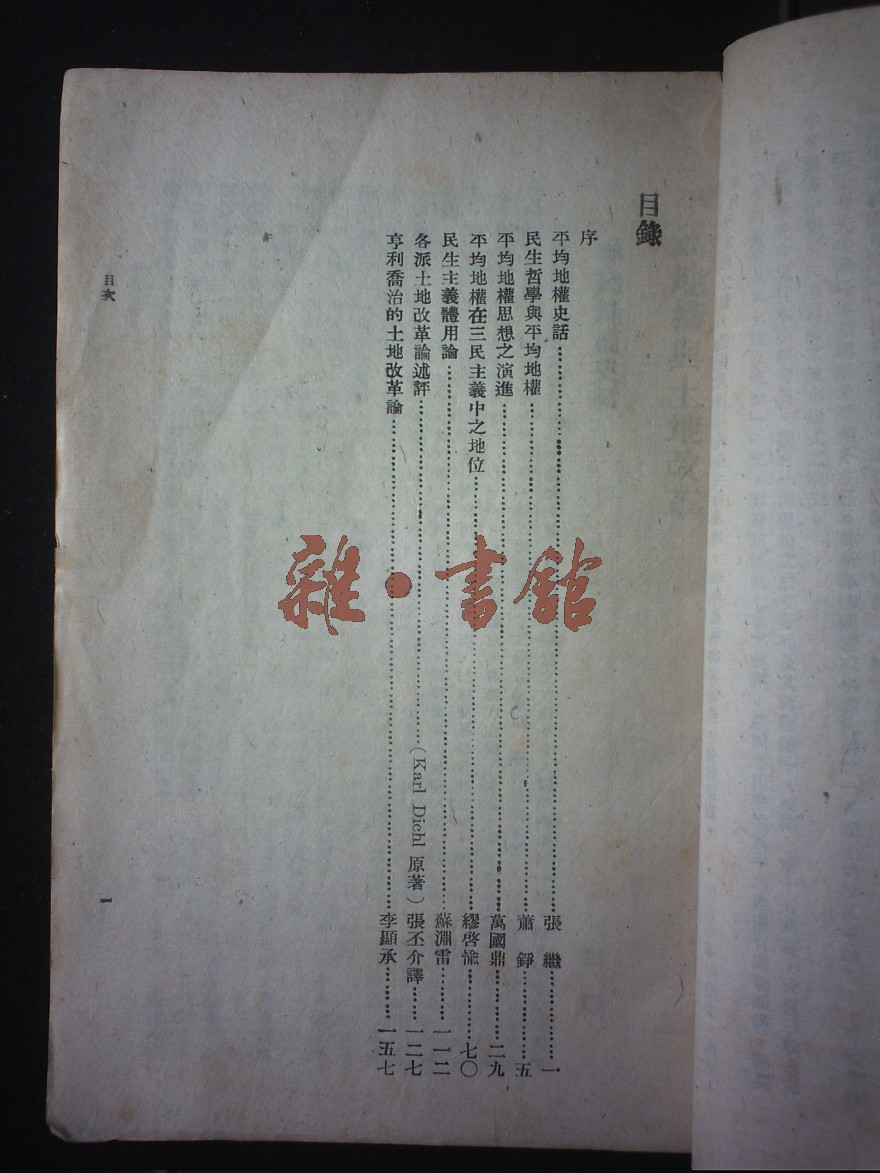 目錄
序
平均地權史話……張　繼……一
民生哲學與平均地權……蕭　錚……五
平均地權思想之演進……萬國鼎……二九
平均地權在三民主義中之地位……繆啓愉……七〇
民生主義體用論……蘇淵雷……一一二
各派土地改革論述評……(Karl Diehl 原著)張丕介譯……一二七
亨利喬治的土地改革論……李顯承……一五七
目次
一
雜・書館